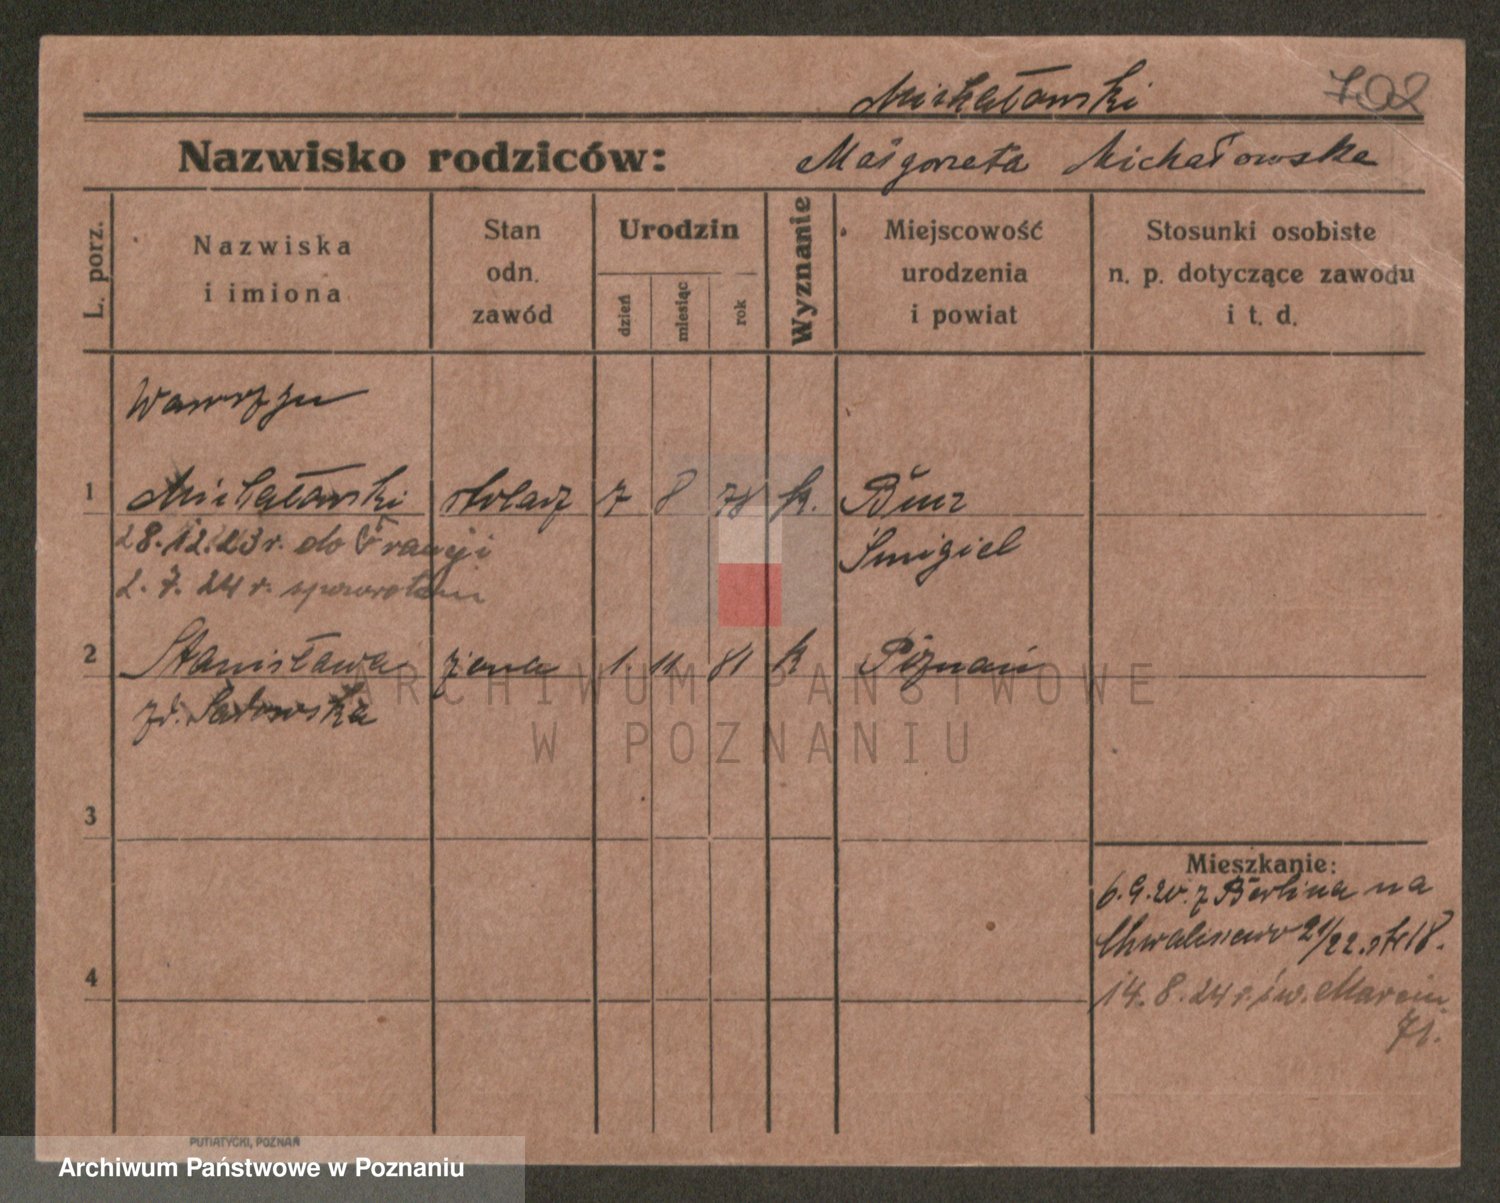 Michałowski 702
Nazwisko rodziców: Małgorzata Michałowska
L. porz.
Nazwiska
i imiona
Stan
odn.
zawód
Urodzin
dzień
miesiąc
rok
Wyznanie
Miejscowość
urodzenia
i powiat
Stosunki osobiste
n. p. dotyczące zawodu
i t. d.
Wawrzyn
1 Michałowski stolarz 7 8 78 k.
28.12.23 r. do Francji Śmigiel
2. 7. 24 r. spowrotem
2 Stanisława żona 1. 11 81 k Poznań
zd.
3
Mieszkanie:
6.9.20. z Berlina na
Chwaliszewo 21/22. str 18.
4
14. 8. 24 r. św. Marcin
71.
ARCHIWUM PAŃSTWOWE
W POZNANIU
PUTIATYCKI, POZNAŃ
Archiwum Państwowe w Poznaniu